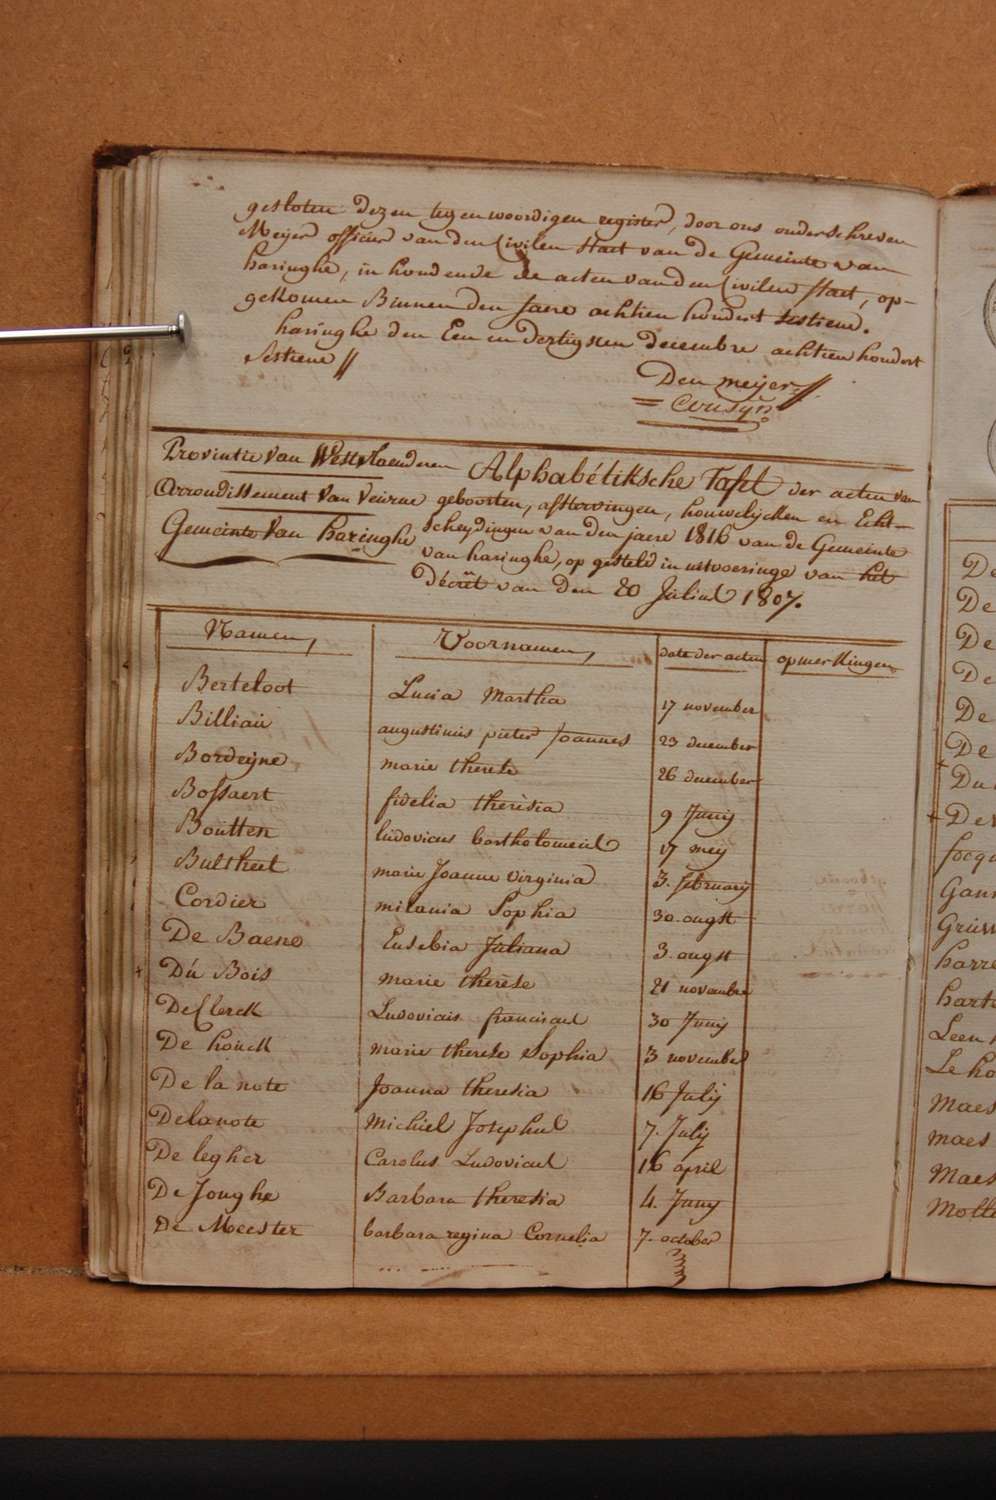 gesloten dezen tegenwoordigen register, door ons onderschreven
Meijer officier van den Civilen Staet van de Gemeinte van
haringhe, in houdende de acten van den Civilen staet, op-
gekomen Binnen den jaere achtien hondert sestiene.
haringhe den Een en dertigsten decembre achtien hondert
sestiene //
Den meijer //.
Cousyn
Provintie van Westvlaenderen
Arrondissement van veurne
Gemeinte van haringhe
Alphabétiksche Tafel der acten van
geboorten, afstervingen, houwelijcken en Echt-
scheydingen van den jaere 1816 van de Gemeinte
van haringhe, op gesteld in uitvoeringe van het
Décrét van den 20 Julius 1807.
Namen, Voornamen, date der acten opmerkingen
Berteloot Lucia Martha 17 november
Billiaü augustinus pieter Joannes 23 december
Bordeyne marie therese 26 december
Bossaert fidelia therèsia 9 Junij
Boütten ludovicus bartholomeus 17 meij
Bultheel marie Joanne virginia 3. februarij
Cordier milania Sophia 30 ougst
De Baene Eusebia Juliana 3. ougst
+ Dú Bois marie therèse 21 novembre
De Clerck Ludovicus franciscus 30 Junij
De houck marie therese Sophia 3 november
De la note Joanna theresia 16 Julij
Delanote Michiel Josephus 7. Julij
De legher Carolus Ludovicus 16 april
De Jonghe Barbara theresia 4. Junij
De Meester barbara regina Cornelia 7. october
De
De
De
De
De
De
Du
+ De
focq
Gann
Grúw
harre
hart
Leen
Le ho
Maes
maes
Maes
Motte